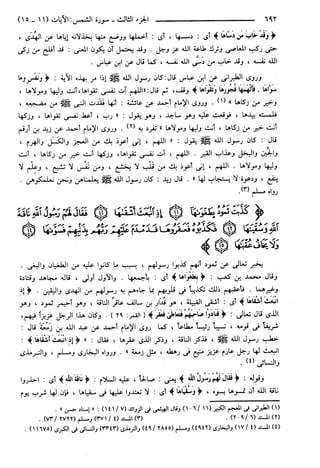 ٦٩٢ الجزء الثالث - سورة الشمس: الآيات (١١ - ١٥)
﴿ وَقَدْ خَابَ مَن دَسَّاهَا ﴾ أي: دسسها، أي: أخملها ووضع منها بخذلانه إياها عن الهُدَى،
حتى ركب المعاصي وترك طاعة الله عز وجل. وقد يحتمل أن يكون المعنى: قد أفلح من زكى
الله نفسه، وقد خاب من دسَّى الله نفسه، كما قال عن ابن عباس.
وروى الطبراني عن ابن عباس قال: كان رسول الله ﷺ إذا مر بهذه الآية: ﴿ وَنَفْسٍ وَمَا
سَوَّاهَا. فَأَلْهَمَهَا فُجُورَهَا وَتَقْوَاهَا ﴾ وقف، ثم قال: «اللهم آت نفسي تقواها، أنت وليها ومولاها،
وخير من زكاها» (١). وروى الإمام أحمد عن عائشة: أنها فقدت النبي ﷺ من مضجعه،
فلمسته بيدها، فوقعت عليه وهو ساجد، وهو يقول: «رب، أعط نفسي تقواها، وزكها
أنت خير من زكاها، أنت وليها ومولاها» تفرد به (٢). وروى الإمام أحمد عن زيد بن أرقم
قال: كان رسول الله ﷺ يقول: «اللهم، إني أعوذ بك من العجز والكسل والهرم،
والجبن والبخل وعذاب القبر. اللهم، آت نفسي تقواها، وزكها أنت خير من زكاها، أنت
وليها ومولاها. اللهم، إني أعوذ بك من قلب لا يخشع، ومن نفس لا تشبع، وعلم لا
ينفع، ودعوة لا يستجاب لها». قال زيد: كان رسول الله ﷺ يعلمناهن ونحن نعلمكموهن.
رواه مسلم (٣).
كَذَّبَتْ ثَمُودُ بِطَغْوَاهَا إِذِ انبَعَثَ أَشْقَاهَا فَقَالَ لَهُمْ رَسُولُ اللَّهِ نَاقَةَ
اللَّهِ وَسُقْيَاهَا فَكَذَّبُوهُ فَعَقَرُوهَا فَدَمْدَمَ عَلَيْهِمْ رَبُّهُم بِذَنبِهِمْ فَسَوَّاهَا
وَلَا يَخَافُ عُقْبَاهَا
يخبر تعالى عن ثمود أنهم كذبوا رسولهم، بسبب ما كانوا عليه من الطغيان والبغي.
وقال محمد بن كعب: ﴿ بِطَغْوَاهَا ﴾ أي: بأجمعها. والأول أولى، قاله مجاهد وقتادة
وغيرهما. فأعقبهم ذلك تكذيباً في قلوبهم بما جاءهم به رسولهم من الهدى واليقين. ﴿ إِذِ
انبَعَثَ أَشْقَاهَا ﴾ أي: أشقى القبيلة، هو قُدَار بن سالف عاقرُ الناقة، وهو أحيمر ثمود، وهو
الذي قال تعالى: ﴿ فَنَادَوْا صَاحِبَهُمْ فَتَعَاطَى فَعَقَرَ ﴾ [القمر: ٢٩]. وكان هذا الرجل عزيزاً فيهم،
شريفاً في قومه، نسيباً رئيساً مطاعاً، كما روى الإمام أحمد عن عبد الله بن زَمْعَةَ قال:
خطب رسول الله ﷺ، فذكر الناقة، وذكر الذي عقرها، فقال: «﴿ إِذِ انبَعَثَ أَشْقَاهَا ﴾:
انبعث لها رجل عارم عزيز منيع في رهطه، مثل أبي زمعة». ورواه البخاري ومسلم، والترمذي
والنسائي (٤).
وقوله: ﴿ فَقَالَ لَهُمْ رَسُولُ اللَّهِ ﴾ يعني: صالحاً، عليه السلام: ﴿ نَاقَةَ اللَّهِ ﴾ أي: احذروا
ناقة الله أن تمسوها بسوء، ﴿ وَسُقْيَاهَا ﴾ أي: لا تعتدوا عليها في سقياها، فإن لها شرب يوم
(١) الطبراني في المعجم الكبير (١١/ ١٠٦) وقال الهيثمي في الزوائد (٧/ ١٤١): «إسناده حسن».
(٢) المسند (٦/ ٢٠٩). (٣) المسند (٤/ ٣٧١) ومسلم (٢٧٢٢/ ٧٣).
(٤) المسند (٤/ ١٧) والبخاري (٤٩٤٢) ومسلم (٢٨٥٥/ ٤٩) والترمذي (٣٣٤٣) والنسائي في الكبرى (١١٦٧٥).